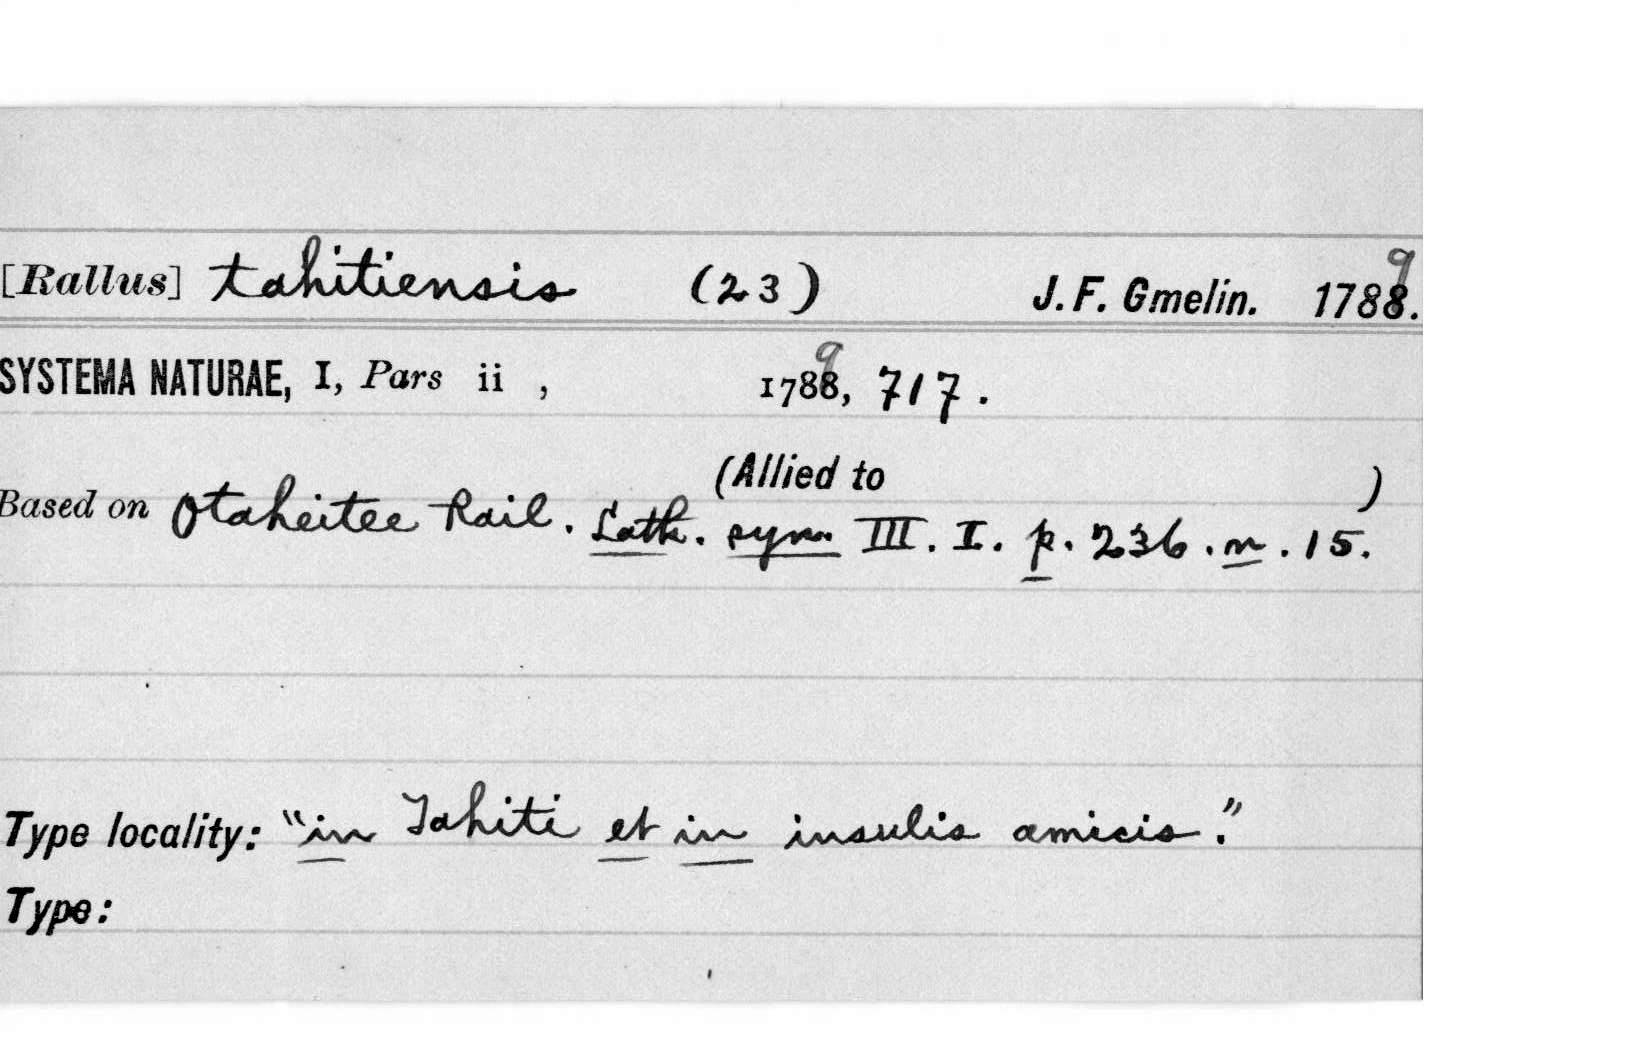 [Rallus] tahitiensis (23) J. F. Gmelin. 1788. 9
SYSTEMA NATURAE, I, Pars ii , 1788, 9 717.
(Allied to )
Based on Otaheitee Rail. Lath. syn. III. I. p. 236. n. 15.
Type locality: "in Tahiti et in insulis amicis."
Type: